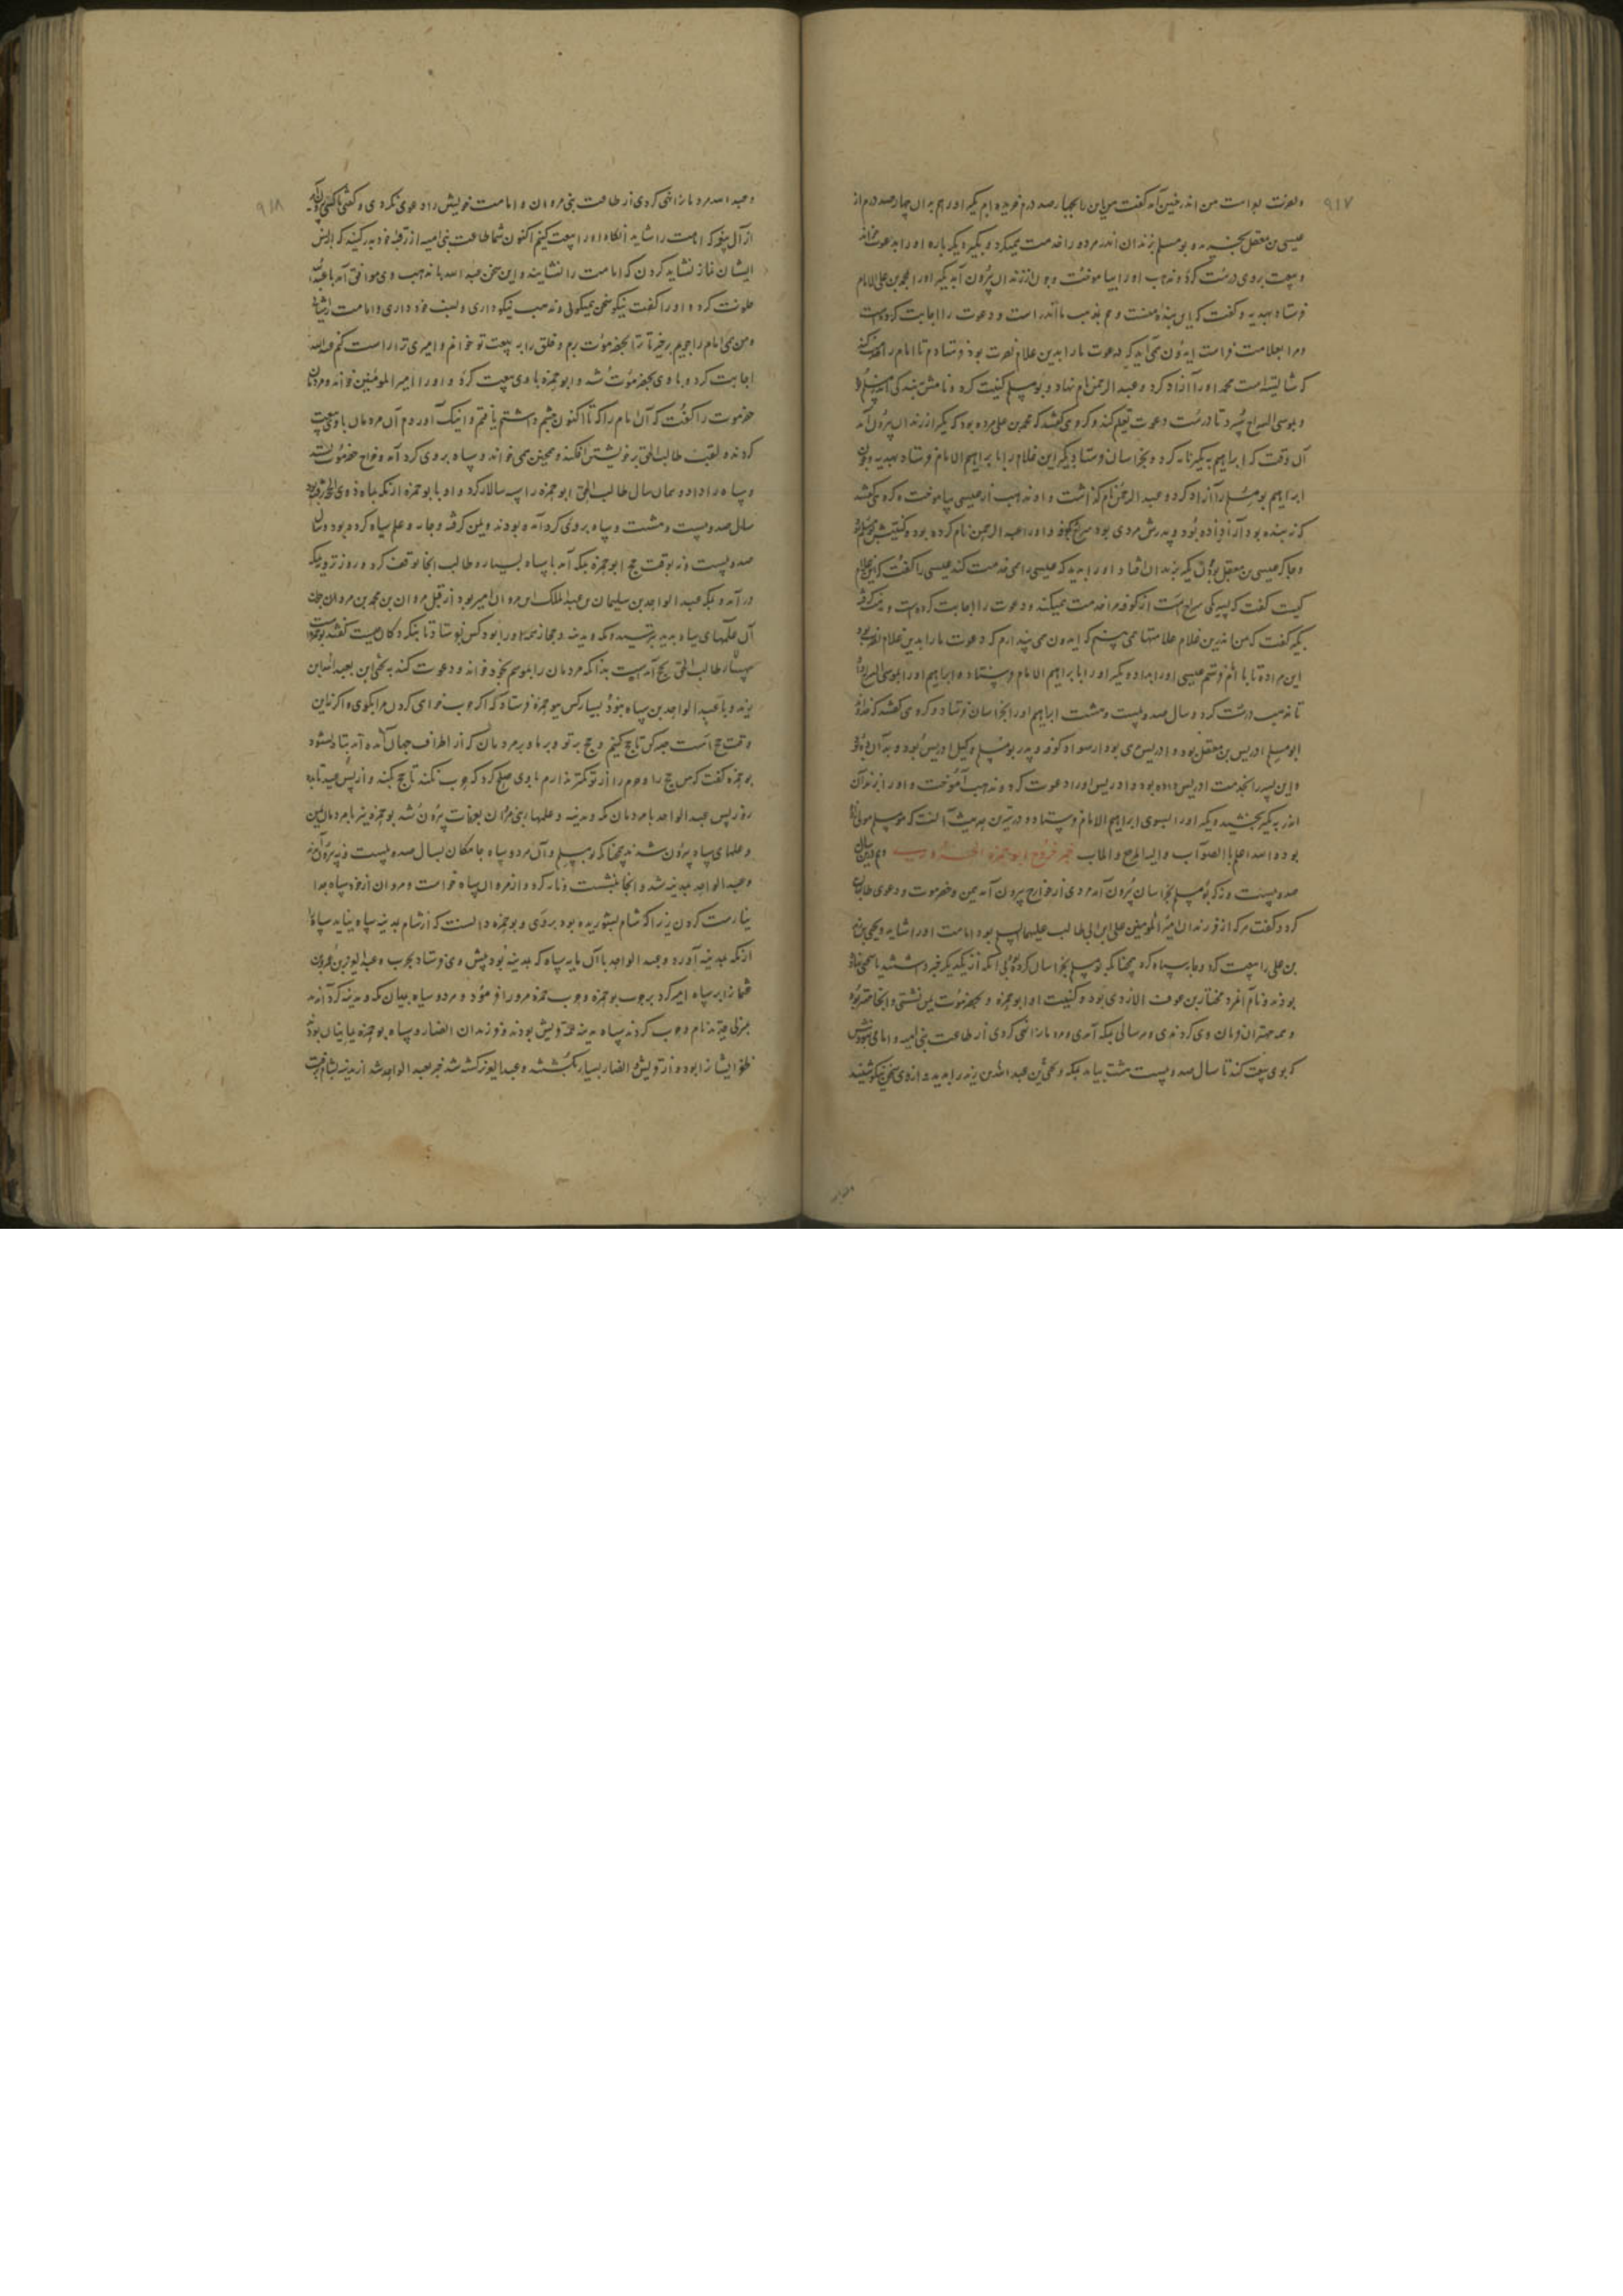 ۹۱۷
و بعزت او امت من اندر چنین آمد گفت من این را بچهار صد درم خریده‌ام بکیر او را هم بدان چهار صد درم از
عیسی بن معقل بخرید و بومسلم بزندان اندر مر دو را خدمت میکرد و بکیر دیگر باره او را بدعوت
و بیعت بروی درست کرد و مذهب او را بیاموخت و چون از زندان بیرون آمد بکیر او را بمحمد بن علی الامام
فرستاد بهدیه و گفت که این بنده منست و هم بمذهب ما اندر است و دعوت را اجابت کرده است
و مرا بعلامت فراست ایدون می‌آید که دعوت ما را بدین غلام نصرت بود فرستادم تا امام را خدمت کند
که شایسته است محمد او را آزاد کرد و عبد الرحمن نام نهاد و بومسلم کنیت کرد و نامش
و بوسی السراج سپرد تا درست دعوت تعلم کند و کروهی گفتند که محمد بن علی مرده بود که بکیر از زندان بیرون آمد
آن وقت که ابراهیم به بکیر نامه کرد و بخراسان فرستاد بکیر این غلام را با ابراهیم الامام فرستاد بهدیه و چون
ابراهیم بومسلم را آزاد کرد و عبد الرحمن نام گذاشت و او مذهب از عیسی بیاموخت و کروهی گفتند
که نه بنده بود آزادزاده بود و پدرش مردی بود سراج بکوفه و او را عبد الرحمن نام کرده بود و کنیتش بومسلم بود
و چاکر عیسی بن معقل بود چون بکیر بزندان افتاد او را بدید که عیسی را می خدمت کند عیسی را گفت که این غلام
کیست گفت که پسر یکی سراج است از کوفه مرا خدمت میکند و دعوت را اجابت کرده است و مذهب گرفته
بکیر گفت که من اندرین غلام علامتها می بینم که ایدون می پندارم که دعوت ما را بدین غلام نصرت بود
این مرا ده تا با امام فرستم عیسی او را بداد و بکیر او را با ابراهیم الامام فرستاد و ابراهیم او را بموسی السراج داد
تا مذهب درست کرد و سال صد و بیست و هشت ابراهیم او را بخراسان فرستاد و کروهی گفتند که خداوند
ابومسلم ادریس بن معقل بود و ادریس مردی بود از سواد کوفه و پدر بومسلم وکیل ادریس بود و بدان ده
و این پسر را بخدمت ادریس داده بود و ادریس او را دعوت کرد و مذهب آموخت و او را بزندان
اندر به بکیر بخشید و بکیر او را بسوی ابراهیم الامام فرستاد و درستترین حدیث آنست که بومسلم مولی
بود و الله اعلم بالصواب و الیه المرجع و المآب خبر خروج ابو حمزه و هم درین سال
صد و بیست و نه که بومسلم بخراسان بیرون آمد مردی از خوارج بیرون آمد بیمن و حضرموت و دعوی طالب
کرد و گفت هر که از فرزندان امیر المومنین علی ابن ابی طالب علیهما السلام بود امامت او را شاید و یحیی بن زید
بن علی را بیعت کرد و جامه سیاه کرد همچنانکه بومسلم بخراسان کرده بی آنکه از یکدیگر خبر داشتند
بودند و نام آن مرد مختار بن عوف الازدی بود و کنیت او ابو حمزه و بحضرموت یمن نشستی و آنجا مقر بود
و همه مهتران فرمان وی کردندی و هر سالی بمکه آمدی و مردمان را نهی کردی از طاعت بنی امیه و امامی
که بوی بیعت کند تا سال صد و بیست هشت بیامد بمکه و یحیی بن عبد الله بن زید را بدید و از وی سخن نیکو شنید
۹۱۸
و عبد الله مردمان را نهی کردی از طاعت بنی مروان و امامت خویش را دعوی نکردی و گفتی تا کسی
از آل پیغمبر که امامت را شاید آنگاه او را بیعت کنیم اکنون شما طاعت بنی امیه از رقبه خود بدر کنید که از پس
ایشان نماز نشاید کردن که امامت را نشایند و این سخن عبد الله با مذهب وی موافق آمد با عبد الله
خلوت کرد و او را گفت نیکو سخن میگوئی و مذهب نیکو داری و نسب خود داری و امامت را شائی
و من همی امام را جویم برخیز تا ترا بحضرموت برم و خلق را به بیعت تو خوانم و امیری ترا راست کنم عبد الله
اجابت کرد و با وی بحضرموت شد و ابو حمزه با وی بیعت کرد و او را امیر المومنین خواند و مردمان
حضرموت را گفت که آن امام را که تا اکنون چشم داشتم یافتم و اینک آوردم آن مردمان با وی بیعت
کردند و لقب طالب الحق بر خویشتن افکند و همچنین می‌خواند و سپاه بروی گرد آمد و خراج حضرموت بستد
و سپاه را داد و بهمان سال طالب الحق ابو حمزه را سپه سالار کرد و او با بو حمزه از مکه بماه ذوی الحجه رفته بود
سال صد و بیست و هشت و سپاه بروی گرد آمده بودند و یمن گرفته و جامه و علم سیاه کرده بود و سال
صد و بیست و نه بوقت حج ابو حمزه بمکه آمد با سپاه بسیار و طالب آنجا توقف کرد و روز ترویه بمکه
در آمد و بمکه عبد الواحد بن سلیمان بن عبد الملک ابن مروان امیر بود از قبل مروان بن محمد بن مروان چون
آن علمهای سیاه بدید بترسید و مکه و مدینه و حجاز همه او را بود کس بفرستاد تا بنگرد که آن کیست گفتند بو حمزه است
سپهسالار طالب الحق بحج آمده است بدانکه مردمان را بموسم بخود خواند و دعوت کند به یحیی ابن عبد الله ابن
یزید و با عبد الواحد بن سپاه نبود بسیار کس ببو حمزه فرستاد که اگر حرب خواهی کردن مرا بگوی و اگر نه این
وقت حج است صبر کن تا حج کنیم و حج بر تو و بر ما و بر مردمان که از اطراف جهان آمده‌اند تباه نشود
بو حمزه گفت که من حج را و حرم را از تو نگه‌تر دارم با وی صلح کرد که حرب نکند تا حج بکند و از پس عید تا ده
روز پس عبد الواحد با مردمان مکه و مدینه و علمهاء بنی مروان بعرفات بیرون شد بو حمزه نیز با مردمان یمن
و علمهای سیاه بیرون شدند همچنانکه بومسلم و آن مر دو سپاه جامگان بسال صد و بیست و نه بیرون آمدند
و عبد الواحد بمدینه شد و آنجا بنشست و نامه کرد و از مروان سپاه خواست و مروان از خود سپاه جدا
نیارست کردن زیرا که شام بشوریده بود بر وی و بو حمزه دانست که از شام بمدینه سپاه نیاید سپاه را
از مکه بمدینه آورد و عبد الواحد با آن مایه سپاه که بمدینه بود پیش وی فرستاد بحرب و عبد العزیز بن عمرو بن
عثمان را بر سپاه امیر کرد بحرب بو حمزه و حرب حمزه مرو را فرمود و مر دو سپاه بمیان مکه و مدینه گرد آمدند
بمنزلی قدید نام و حرب کردند سپاه مدینه همه قریش بودند و فرزندان انصار و سپاه بو حمزه بیابانیان بودند
ظفر ایشان را بود و از قریش و انصار بسیار بکشتند و عبد العزیز کشته شد خبر بعبد الواحد شد از مدینه بشام گریخت